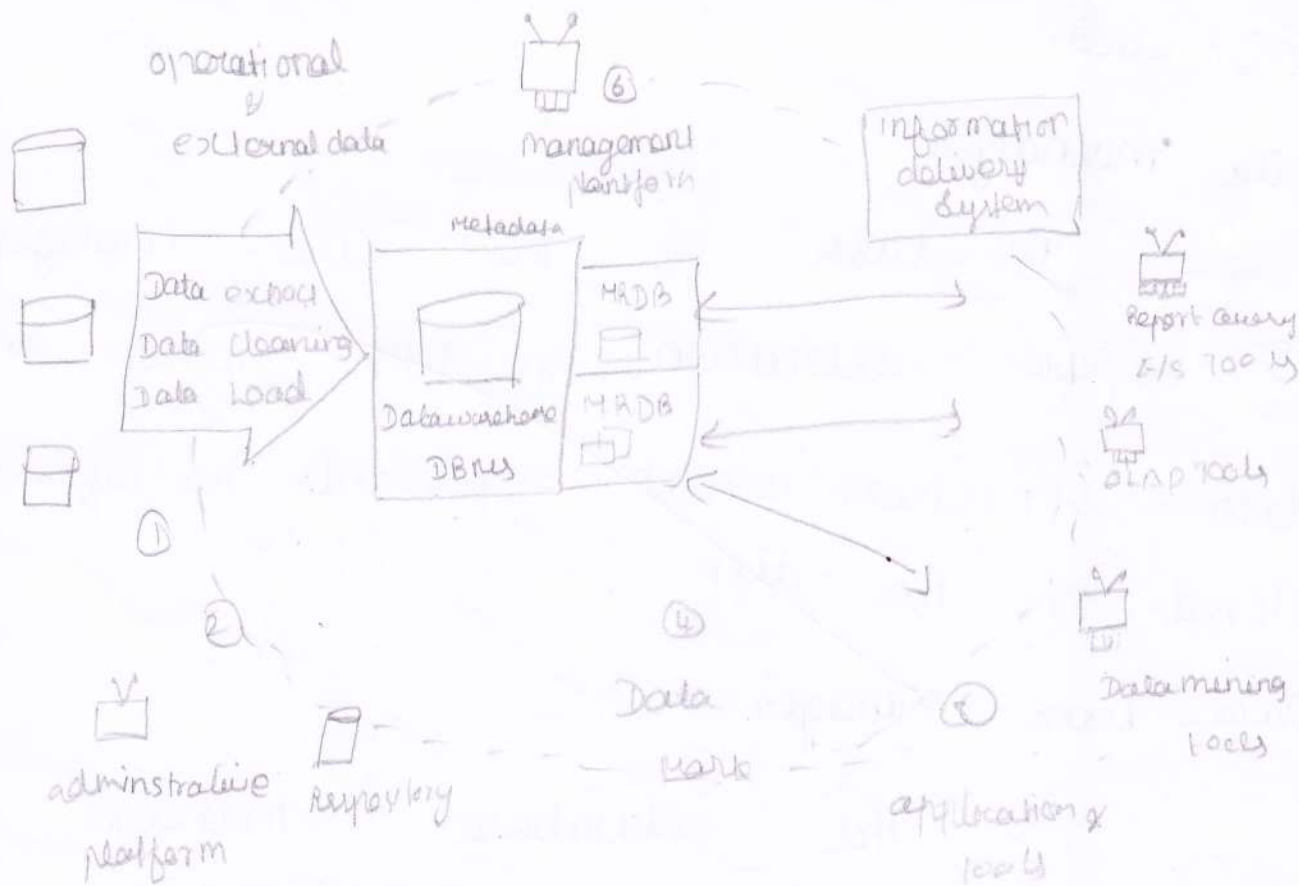 operational
&
external data
6
management
plantform
Metadata
information
delivery
System
Data extract
Data cleaning
Data Load
Datawarehouse
DBMS
MRDB
MRDB
Report query
E/S Tools
OLAP Tools
Data mining
tools
1
2
4
Data
Mark
adminstrative
platform
Repository
application &
tools